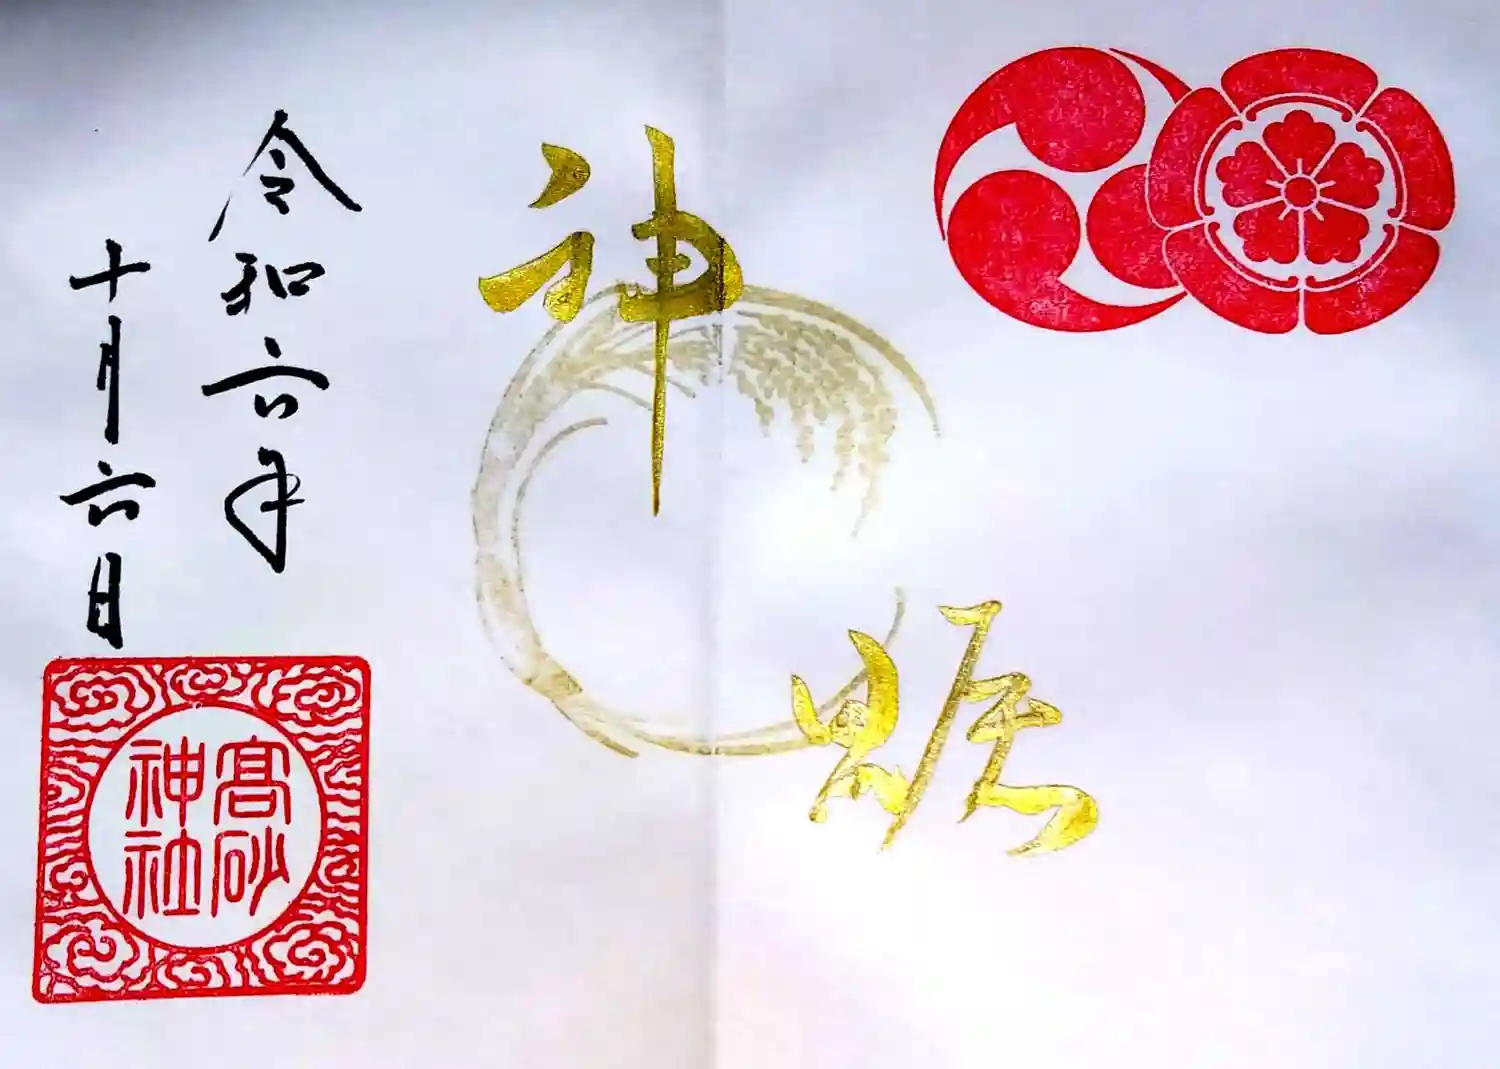 神賑
令和六年
十月六日
高砂
神社